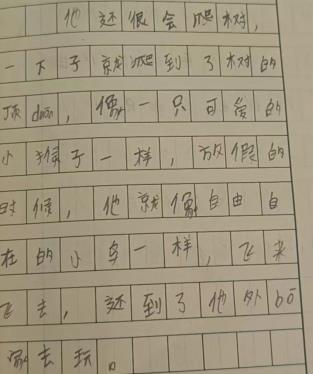 他还很会爬树，
一下子就爬到了树的
顶duān，像一只可爱的
小猴子一样，放假的
时候，他就像自由自
在的小鸟一样，飞来
飞去，还到了他外bō
家去玩。